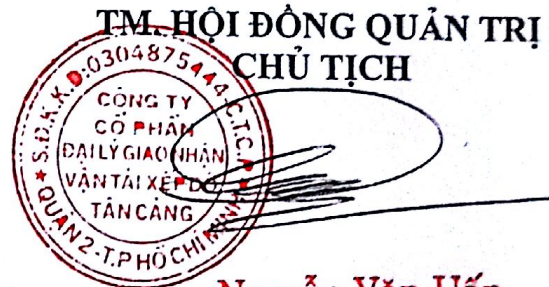 TM. HỘI ĐỒNG QUẢN TRỊ
CHỦ TỊCH
S.Đ.K.K.D:0304875444-C.T.C.P
CÔNG TY
CỔ PHẦN
ĐẠI LÝ GIAO NHẬN
VẬN TẢI XẾP DỠ
TÂN CẢNG
QUẬN 2-T.P HỒ CHÍ MINH
Văn